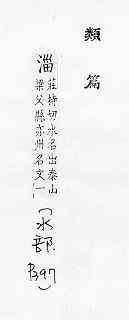 類篇
淄
莊持切水名出泰山
梁父縣亦州名文一
(水部
P397)